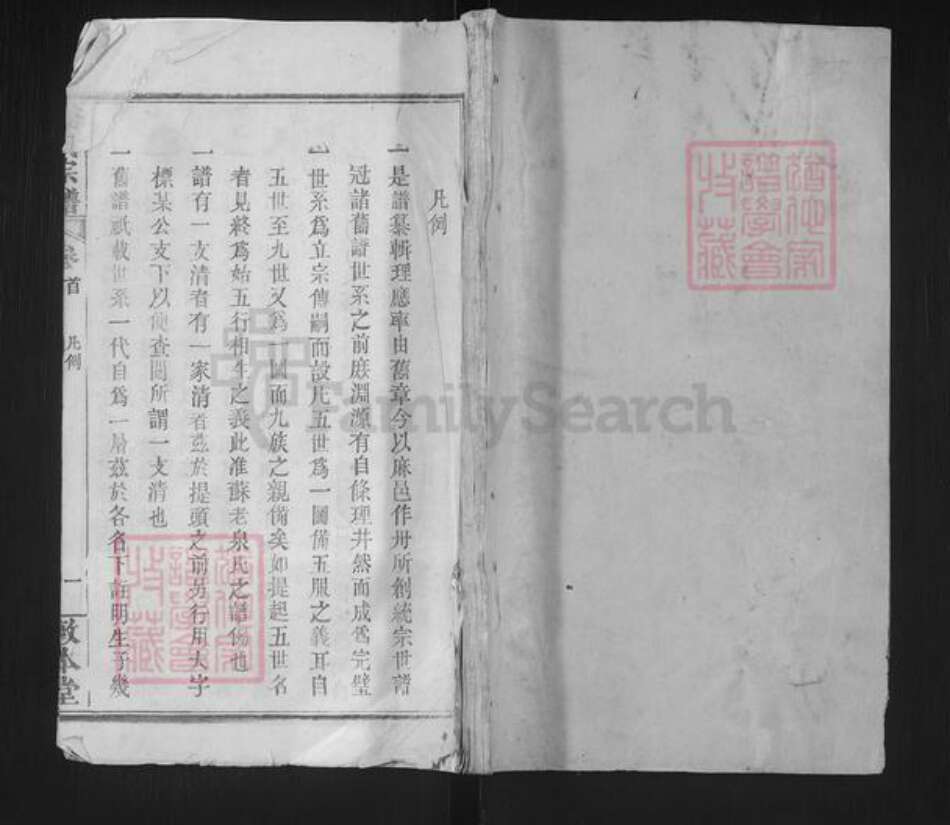 凡例
一是譜纂輯理應率由舊章今以麻邑作卅所創統宗世譜
冠諸舊譜世系之前庶淵源有自條理井然而成爲完璧
一世系爲立宗傳嗣而設凡五世爲一圖備五服之義耳自
五世至九世又爲一圖而九族之親備矣如提起五世名
者見終爲始五行相生之義此准蘇老泉氏之譜傷也
一譜有一支清者有一家清者茲於提頭之前另行用大字
標某公支下以便查閱所謂一支清也
一舊譜祇載世系一代自爲一層茲於各名下註明生子幾
宗譜
卷首
凡例
一
敦本堂
譜學會
收藏
FamilySearch